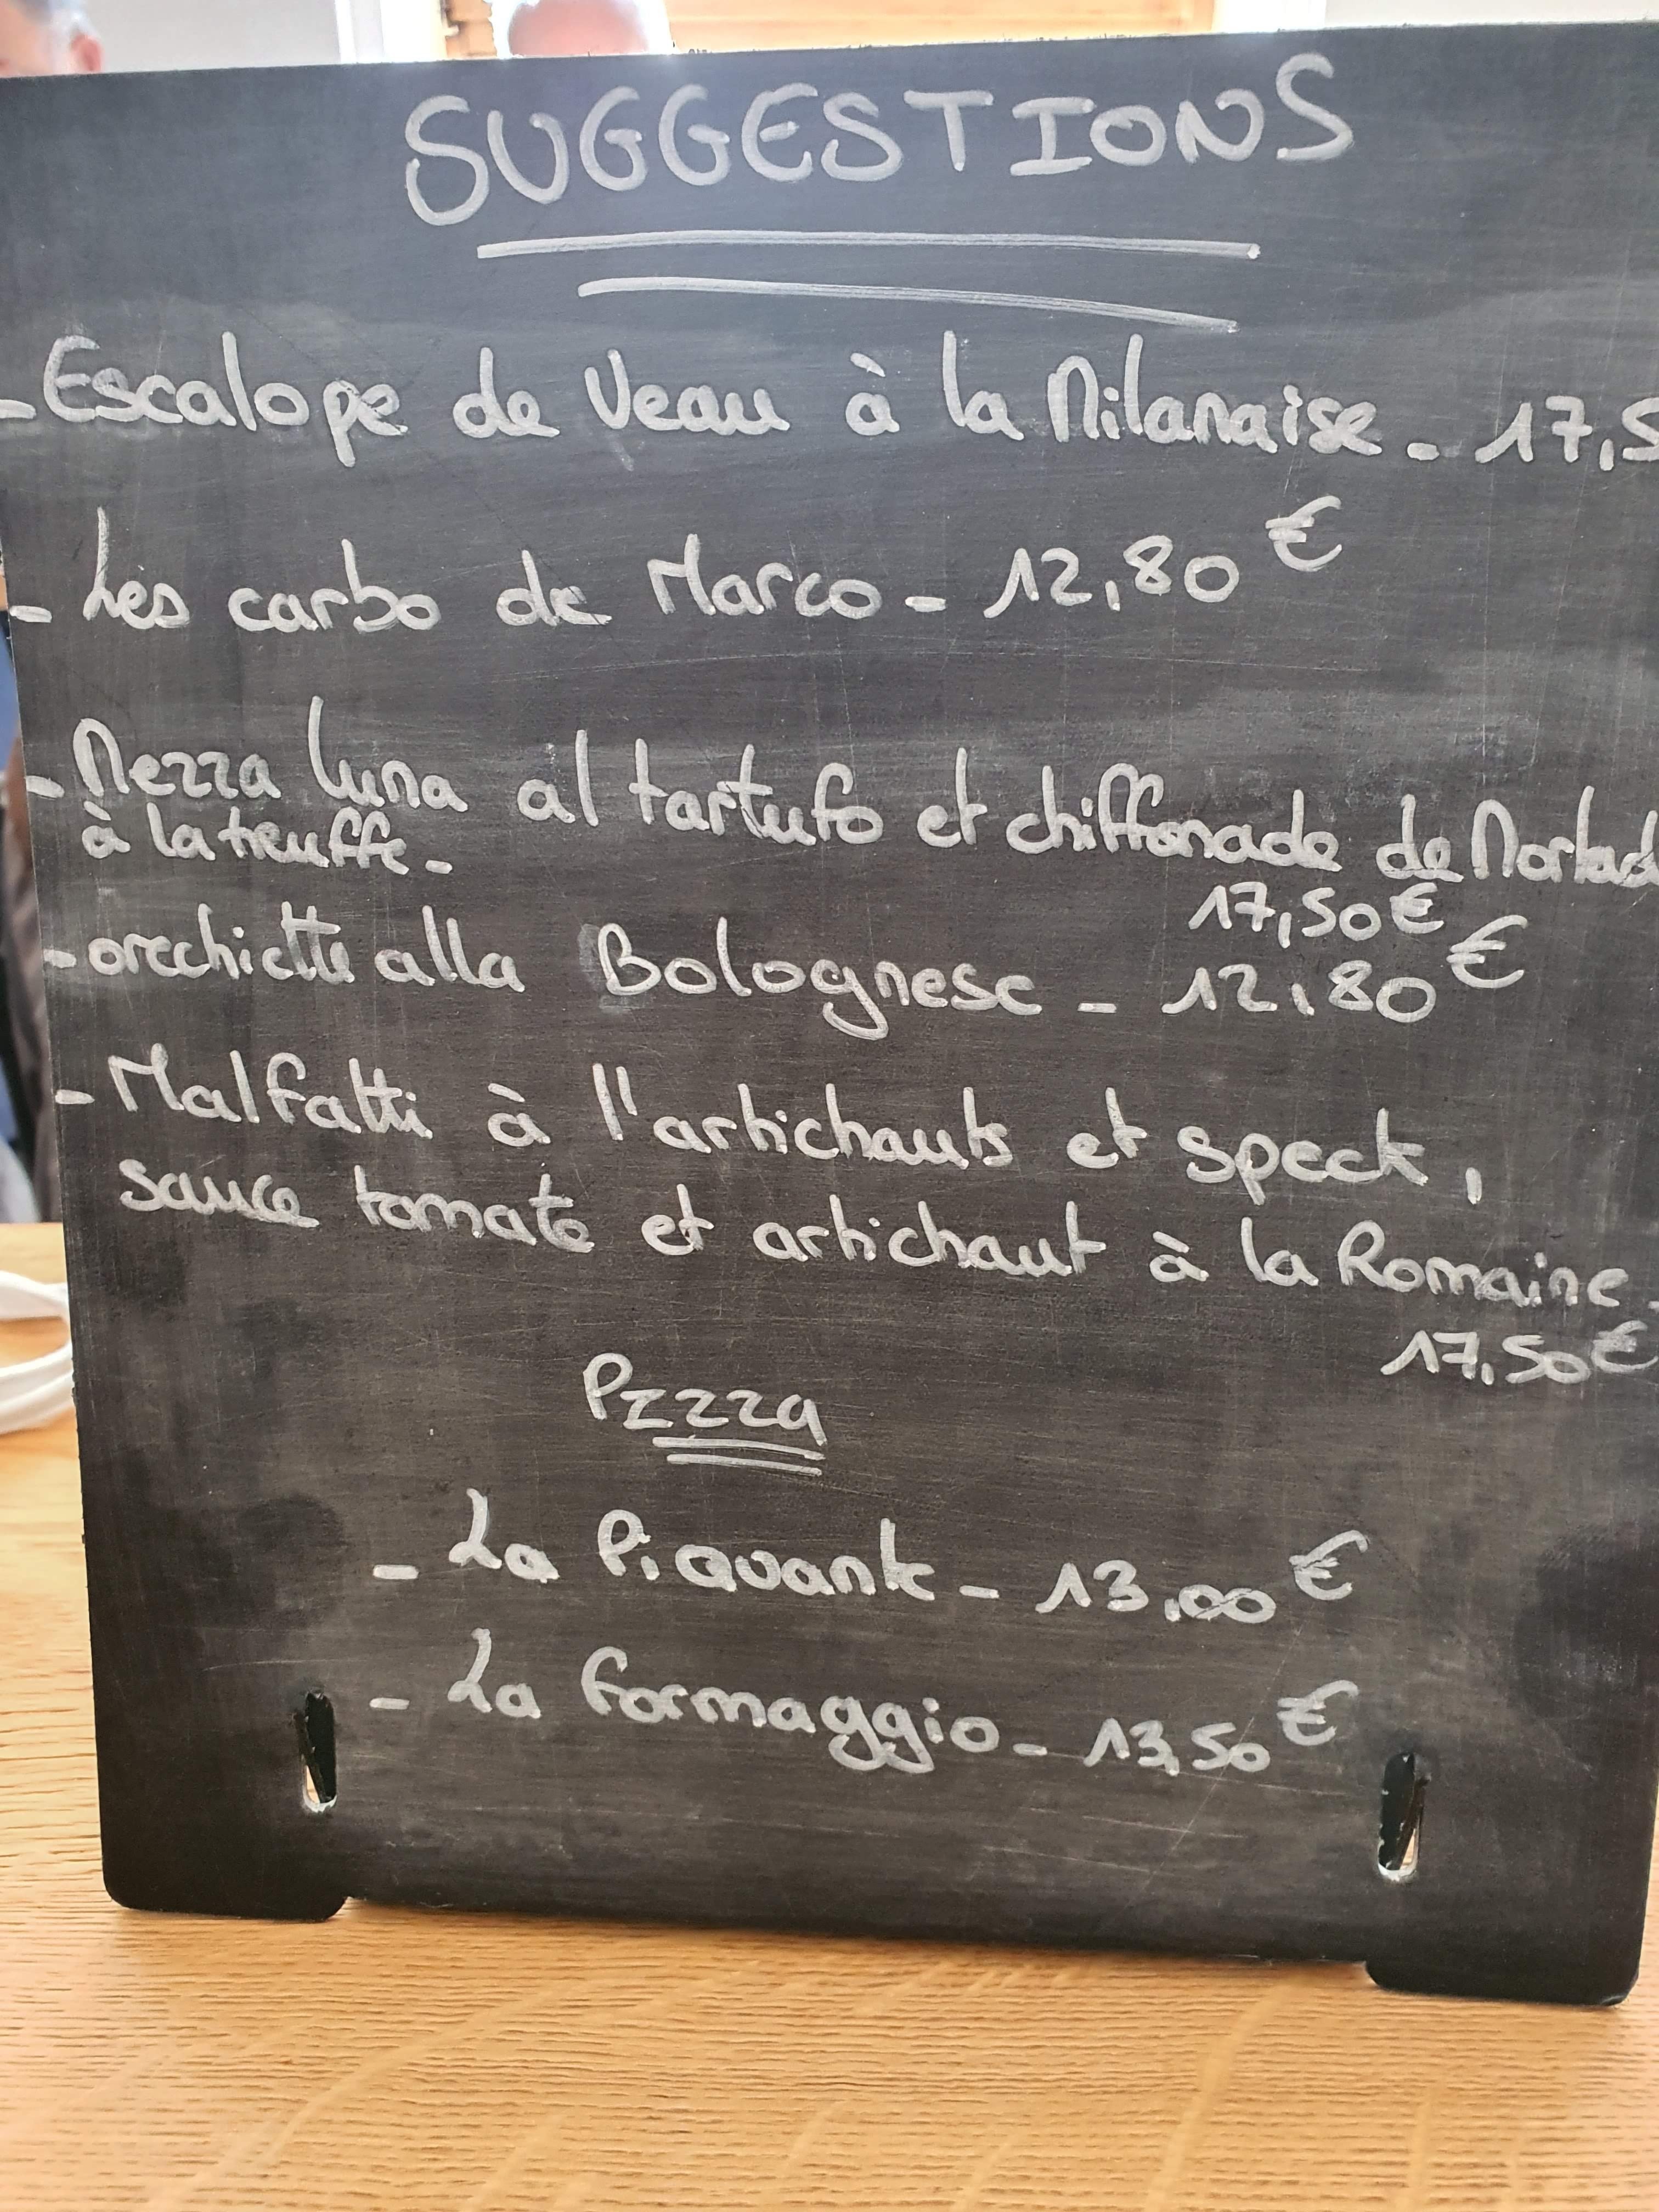 SUGGESTIONS
- Escalope de Veau à la Milanaise - 17,5
- Les carbo de Marco - 12,80 €
- Mezza luna al tartufo et chiffonade de Mortad
à la truffe -
17,50 €
- orecchiette alla Bolognese - 12,80 €
- Malfatti à l'artichauts et speck,
sauce tomate et artichaut à la Romaine -
17,50 €
PIZZA
- La Piquante - 13,00 €
- La Formaggio - 13,50 €